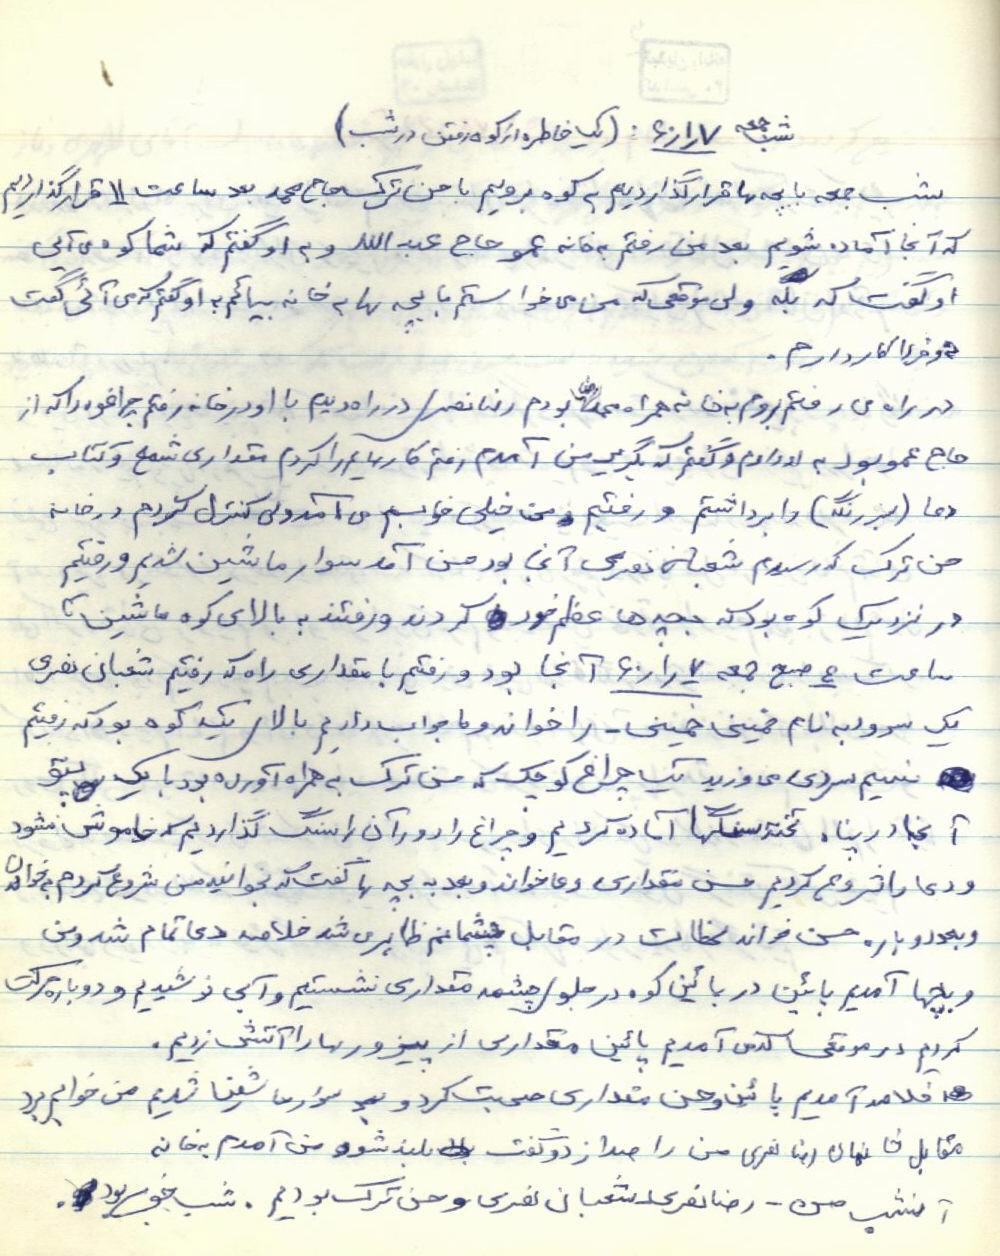 شب جمعه ۶۰/۱/۷ : (یک خاطره از کوه رفتن در شب)
شب جمعه با بچه ها قرار گذاردیم به کوه برویم با حسن ترک حاج محمد بعد ساعت ۱۱ قرار گذاردیم
که آنجا آماده شویم بعد من رفتم به خانه عمو حاج عبدالله و به او گفتم که شما کوه می آیی
او گفت که بله ولی موقعی که من می خواستم با بچه ها به خانه بیائیم به او گفتم که می آئی گفت
فردا کار دارم .
در راه می رفتم بروم به خانه همراه محمد بودم رضا نصری در راه دیدم با او در خانه رفتم چراغوه را که از
حاج عمو بود به او دادم و گفتم که بگیر من آمدم رفتم کارهایم را کردم مقداری شمع و کتاب
دعا (سبز رنگ) را برداشتم و رفتیم من خیلی خوابم می آمد ولی کنترل کردم در خانه
حسن ترک که رسیدم شعبانی نفری آنجا بود حسن آمد سوار ماشین شدیم و رفتیم
در نزدیک کوه بود که بچه ها عظم خود کردند و رفتند به بالای کوه ماشین تا
ساعت ۴ صبح جمعه ۶۰/۱/۷ آنجا بود و رفتیم با مقداری راه که رفتیم شعبانی نفری
یک سرود به نام خمینی خمینی - را خواند و ما جواب دادیم بالای یک کوه بود که رفتیم
نسیم سردی می وزید یک چراغ کوچک که حسن ترک به همراه آورده بود با یک پتو
آنجا در پناه تخته سنگها آماده کردیم و چراغ را دور آن را سنگ گذاردیم که خاموش نشود
و دعا را شروع کردیم حسن مقداری دعا خواند و بعد به بچه ها گفت که بخوانید من شروع کردم به خواندن
و بعد دوباره حسن خواند لحظات در مقابل چشمانم ظاهر می شد خلاصه دعا تمام شد و من
و بچها آمدیم پائین در پائین کوه در جلوی چشمه مقداری نشستیم و آبی نوشیدیم و دوباره حرکت
کردیم در موقع آمدیم پائین مقداری از را آتش زدیم .
خلاصه آمدیم پائین و حسن مقداری صحبت کرد و سوار ماشین شدیم من خوابم برد
مقابل خانمان رضا نفری من را صدا زد و گفت بلند شو من آمدم به خانه
آنشب من - رضا نفری شعبانی نفری و حسن ترک بودیم . شب خوبی بود .